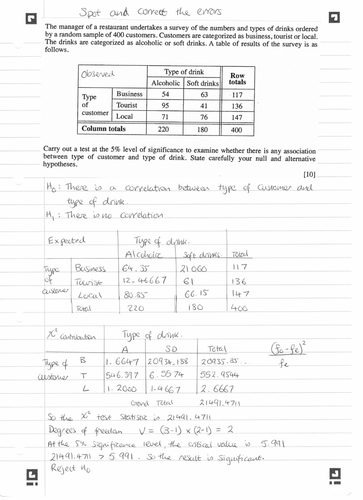 Spot and correct the errors
The manager of a restaurant undertakes a survey of the numbers and types of drinks ordered
by a random sample of 400 customers. Customers are categorized as business, tourist or local.
The drinks are categorized as alcoholic or soft drinks. A table of results of the survey is as
follows.
Observed Type of drink Row totals
Alcoholic Soft drinks
Type of customer Business 54 63 117
Tourist 95 41 136
Local 71 76 147
Column totals 220 180 400
Carry out a test at the 5% level of significance to examine whether there is any association
between type of customer and type of drink. State carefully your null and alternative
hypotheses.
[10]
H0: There is a correlation between type of customer and
type of drink.
H1: There is no correlation
Expected Type of drink.
Alcoholic Soft drinks Total
Type of customer Business 64.35 21060 117
Tourist 12.46667 61 136
Local 80.85 66.15 147
Total 220 180 400
X² contribution Type of drink.
A SD Total (fo-fe)²
fe
Type of customer B 1.6647 20934.188 20935.85
T 546.397 6.5574 552.9544
L 1.2000 1.4667 2.6667
Grand Total 21491.4711
So the X² test statistic is 21491.4711
Degrees of freedom V = (3-1) × (2-1) = 2
At the 5% significance level, the critical value is 5.991
21491.4711 > 5.991. So the result is significant.
Reject H0